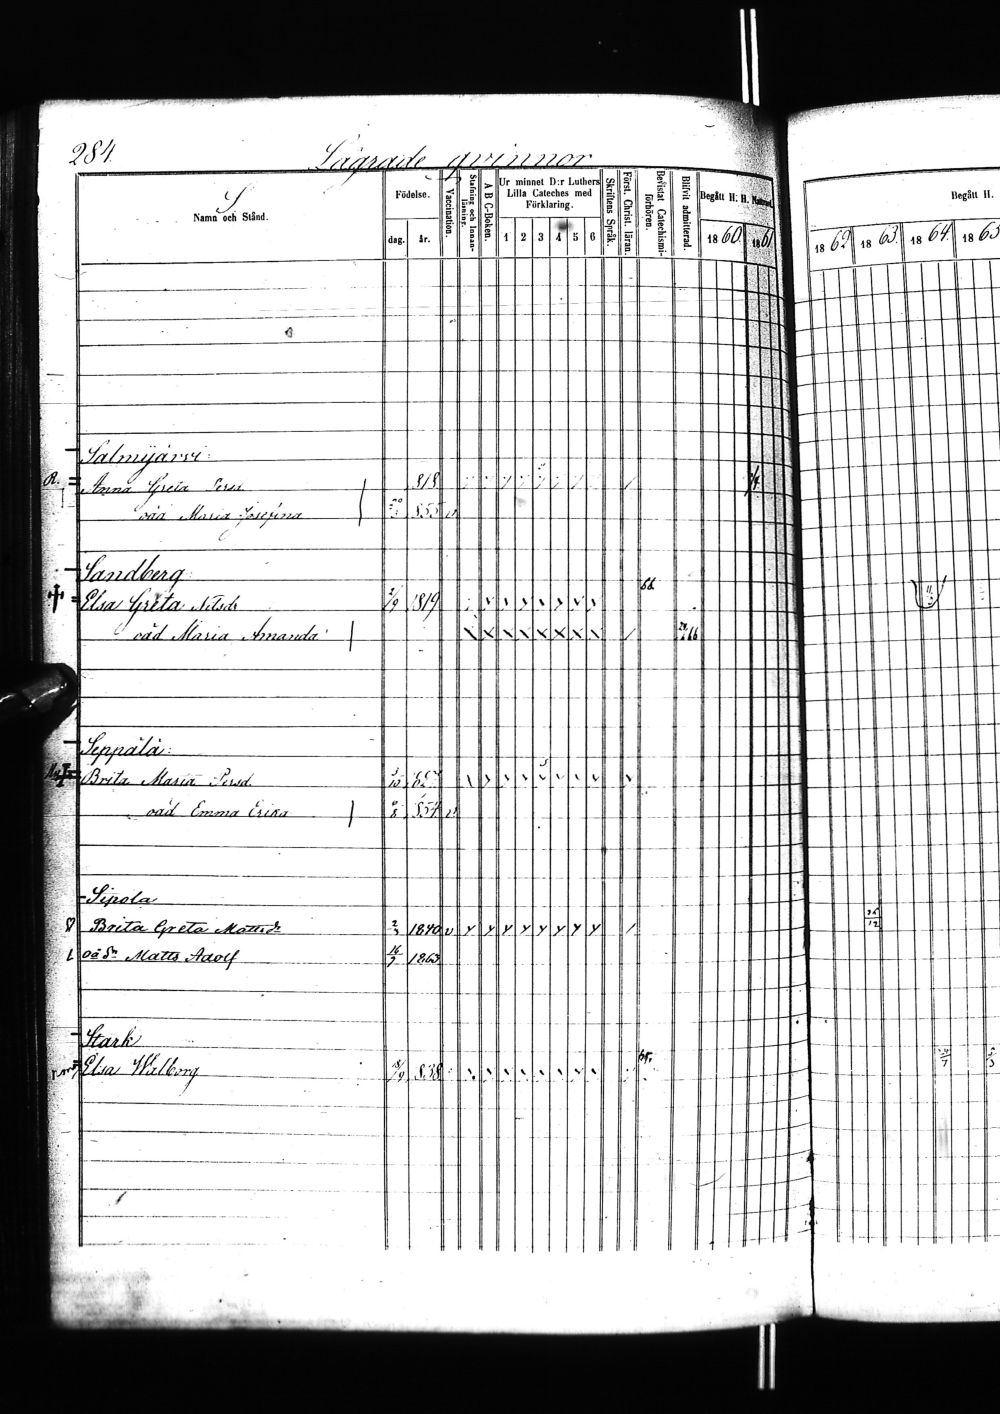 284.
Lägrade qvinnor
S
Namn och Stånd.
Födelse.
dag.
år.
Vaccination.
Stafning och Innanläsning.
A B C-Boken.
Ur minnet D:r Luthers
Lilla Cateches med
Förklaring.
1 2 3 4 5 6
Skriftens Språk.
Först. Christ. läran.
Bevistat Catechismiförhören.
Blifvit admitterad.
Begått H. H. Nattvard
1860. 1861.
Begått H.
1862 1863. 1864. 1865
Salmijärvi:
R. Anna Greta Persd. 818
oäd Maria Josefina 855 v
Sandberg
Elsa Greta Nilsdr 2/9 1819 66
oäd Maria Amanda 66
Seppälä:
Brita Maria Persd.
oäd Emma Erika 854 v
Sipola
Brita Greta Mattsdr 2/3 1840 v
oäSn Matts Adolf 16/7 1863
Stark
Elsa Walborg 838